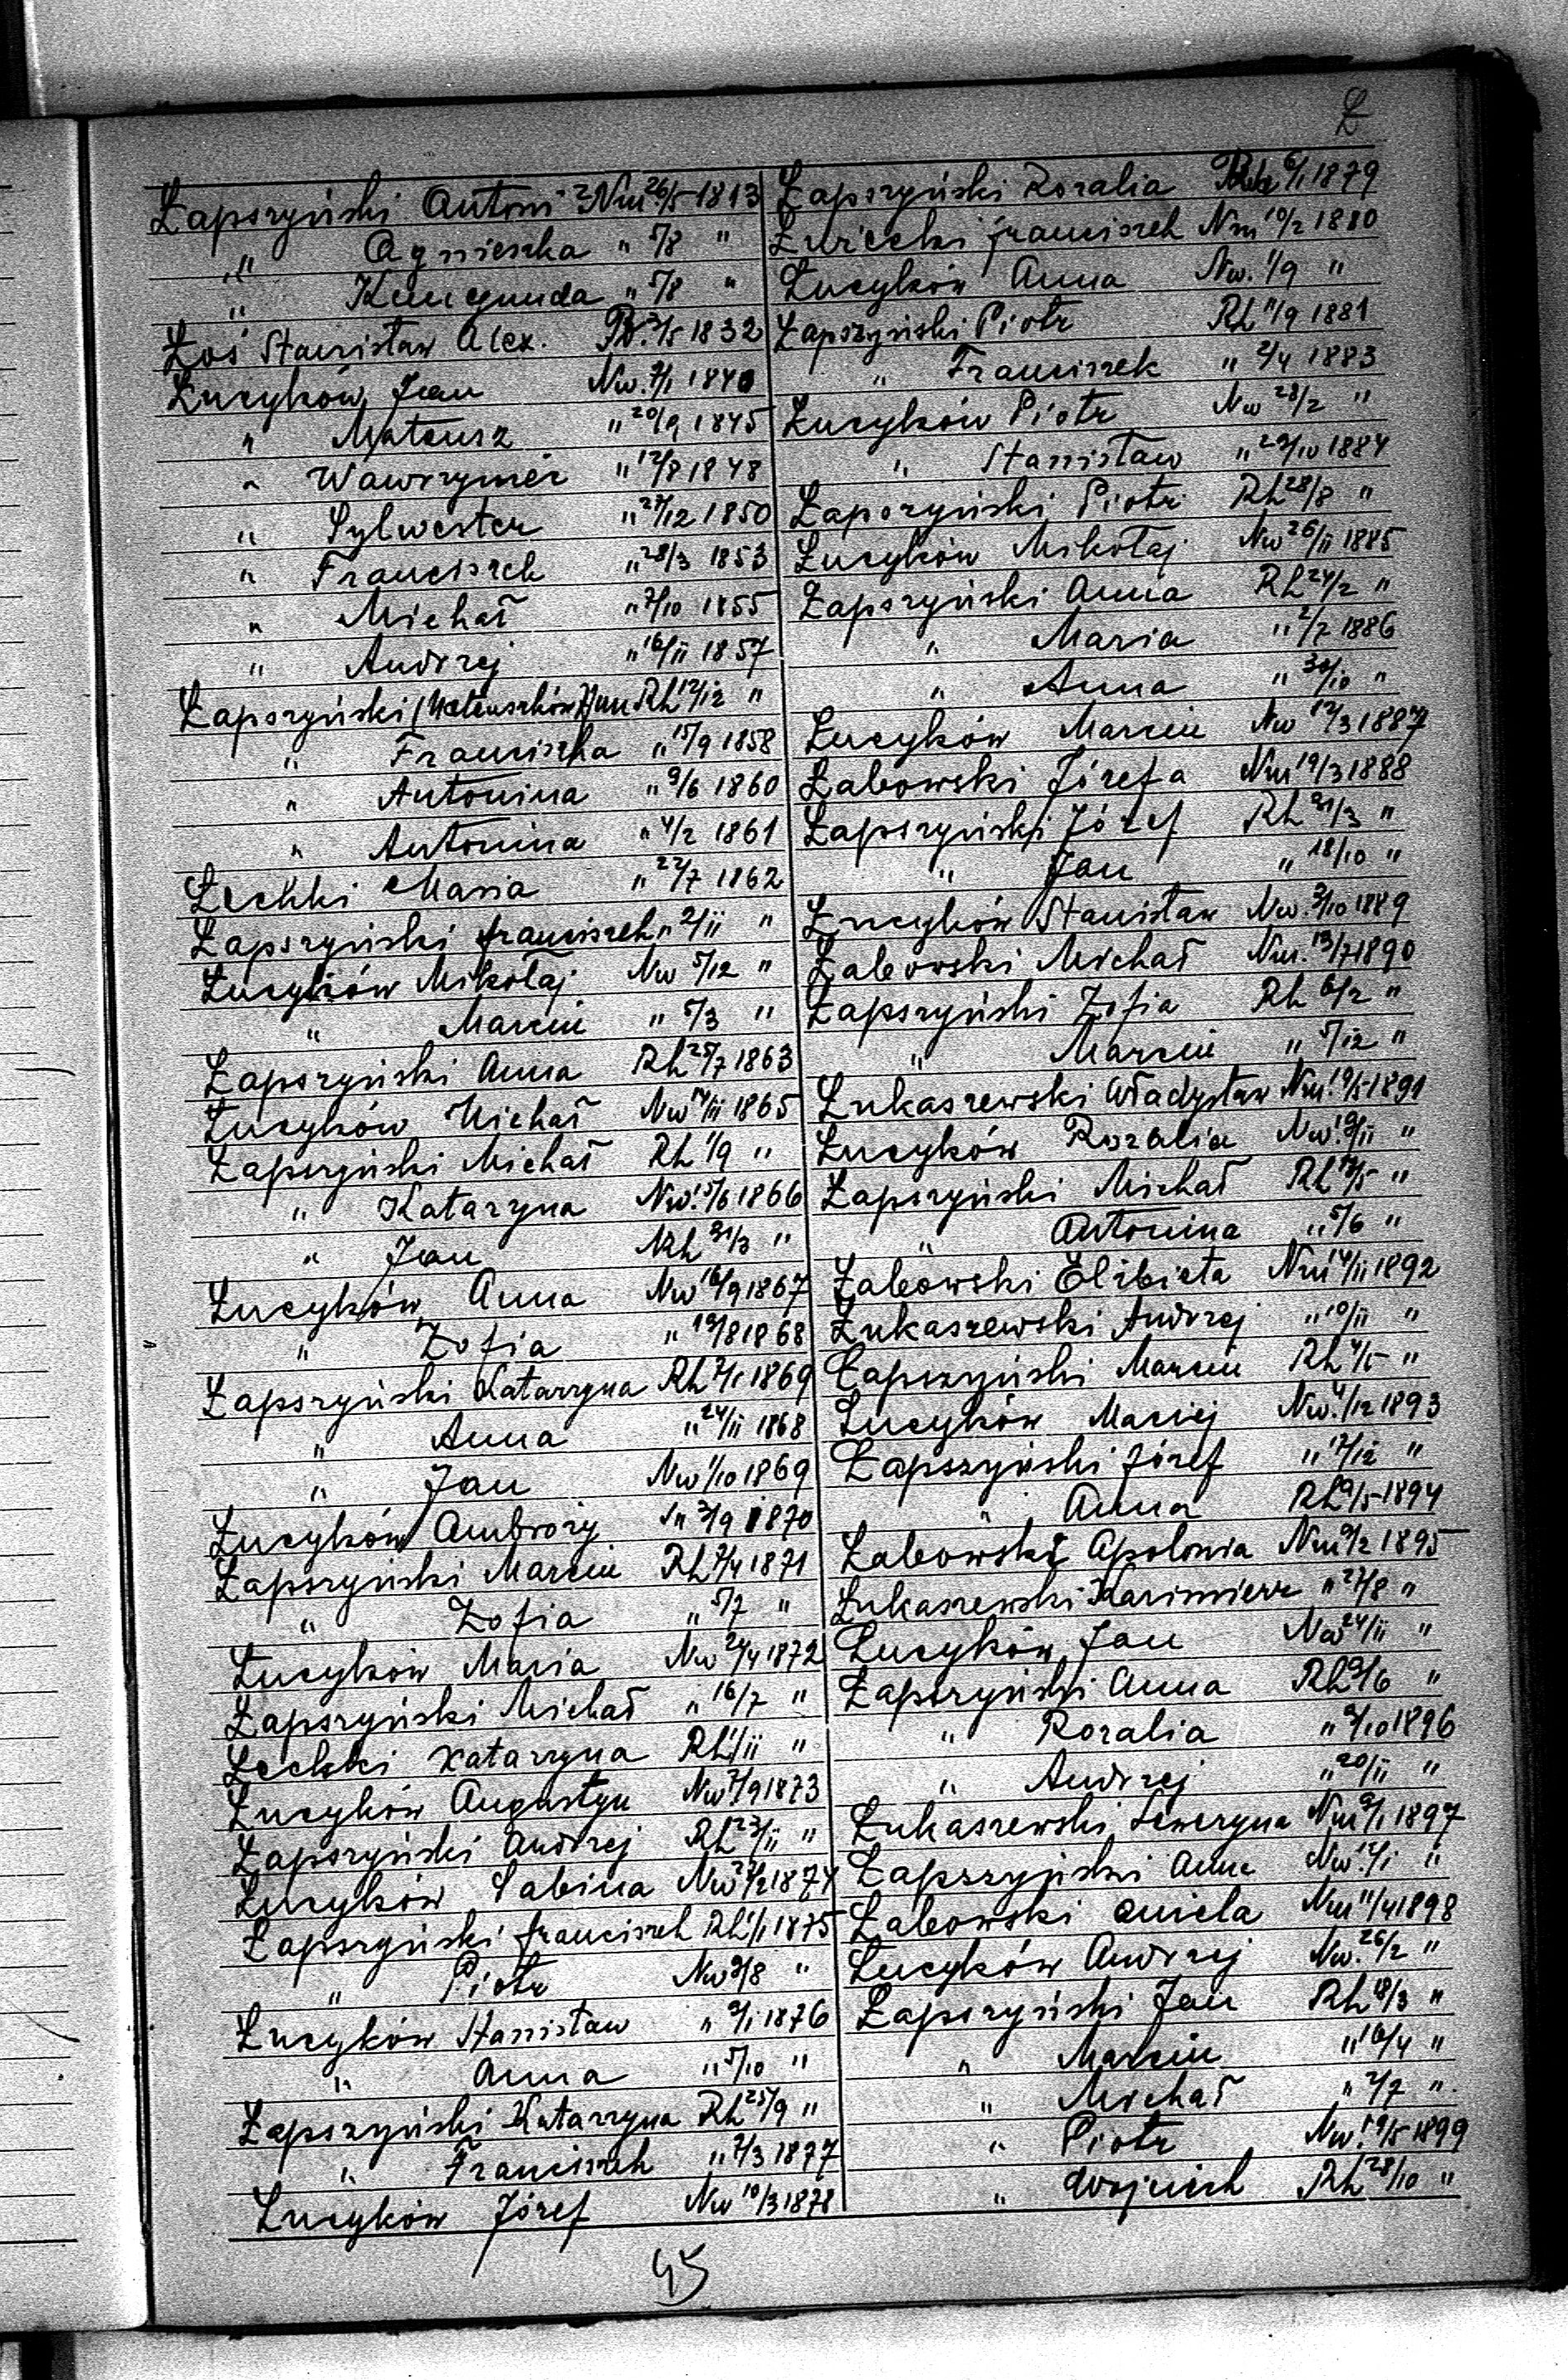 Ł
Łapszyński Antoni Nm 26/5 1813
" Agnieszka " 5/8 "
" Kunegunda " 5/8 "
Łoś Stanisław Alex. 1832
Łucyków Jan Nw. 1840
" Mateusz " 20/9 1845
" Wawrzyniec " 12/8 1848
" Sylwester " 27/12 1850
" Franciszek " 28/3 1853
" Michał " 7/10 1855
" Andrzej " 16/11 1857
Łapszyński (Mateuszków) Rh 12/12 "
" Franciszka " 15/9 1858
" Antonina " 9/6 1860
" Antonina " 4/2 1861
Łechki Maria " 22/7 1862
Łapszyński Franciszek " 2/11 "
Łucyków Mikołaj Nw 5/12 "
" Marcin " 5/3 "
Łapszyński Anna Rh 25/7 1863
Łucyków Michał Nw 1865
Łapszyński Michał Rh 1/9 "
" Katarzyna Nw. 15/6 1866
" Jan Rh 31/3 "
Łucyków Anna Nw 16/9 1867
" Zofia " 19/8 1868
Łapszyński Katarzyna Rh 1869
" Anna " 24/11 1868
" Jan Nw 1/10 1869
Łucyków Ambroży " 3/9 1870
Łapszyński Marcin Rh 7/4 1871
" Zofia " 5/7 "
Łucyków Maria Nw 24/4 1872
Łapszyński Michał " 16/7 "
Łechki Katarzyna Rh 1/11 "
Łucyków Augustyn Nw 7/9 1873
Łapszyński Andrzej Rh 23/11 "
Łucyków Sabina Nw 1874
Łapszyński Franciszek Rh 1/1 1875
" Piotr Nw 3/8 "
Łucyków Stanisław " 9/1 1876
" Anna " 5/10 "
Łapszyński Katarzyna Rh 25/9 "
" Franciszek " 7/3 1877
Łucyków Józef Nw 10/3 1878
Łapszyński Rozalia Rh 6/1 1879
Franciszek Nm 10/2 1880
Łucyków Anna Nw. 1/9 "
Łapszyński Piotr Rh 11/9 1881
" Franciszek " 2/4 1883
Łucyków Piotr Nw 28/2 "
" Stanisław " 29/10 1884
Łapszyński Piotr Rh 28/8 "
Łucyków Mikołaj Nw 26/11 1885
Łapszyński Anna Rh 24/2 "
" Maria " 2/7 1886
" Anna " 30/10 "
Łucyków Marcin Nw 12/3 1887
Łabowski Józefa Nm 19/3 1888
Łapszyński Józef Rh 21/3 "
" Jan " 18/10 "
Łucyków Stanisław Nw. 3/10 1889
Łabowski Michał Nm. 13/7 1890
Łapszyński Zofia Rh 6/2 "
" Marcin " 5/12 "
Łukaszewski Władysław Nm. 19/5 1891
Łucyków Rozalia Nw. 19/11 "
Łapszyński Michał Rh 17/5 "
" Antonina " 5/6 "
Łabowski Elżbieta Nm 14/11 1892
Łukaszewski Andrzej " 10/11 "
Łapszyński Marcin Rh 4/5 "
Łucyków Maciej Nw. 4/12 1893
Łapszyński Józef " 17/12 "
" Anna Rh 9/5 1894
Łabowski Apolonia Nm 9/2 1895
Łukaszewski Kazimierz " 27/8 "
Łucyków Jan Nw 24/11 "
Łapszyński Anna Rh 9/6 "
" Rozalia " 9/10 1896
" Andrzej " 20/11 "
Łukaszewski Seweryna Nm 9/1 1897
Łapszyński Anna Nw. 17/1 "
Łabowski Aniela Nm 11/4 1898
Łucyków Andrzej Nw. 26/2 "
Łapszyński Jan Rh 18/3 "
" Marcin " 16/4 "
" Michał " 2/7 "
" Piotr Nw. 19/5 1899
" Wojciech Rh 28/10 "
45